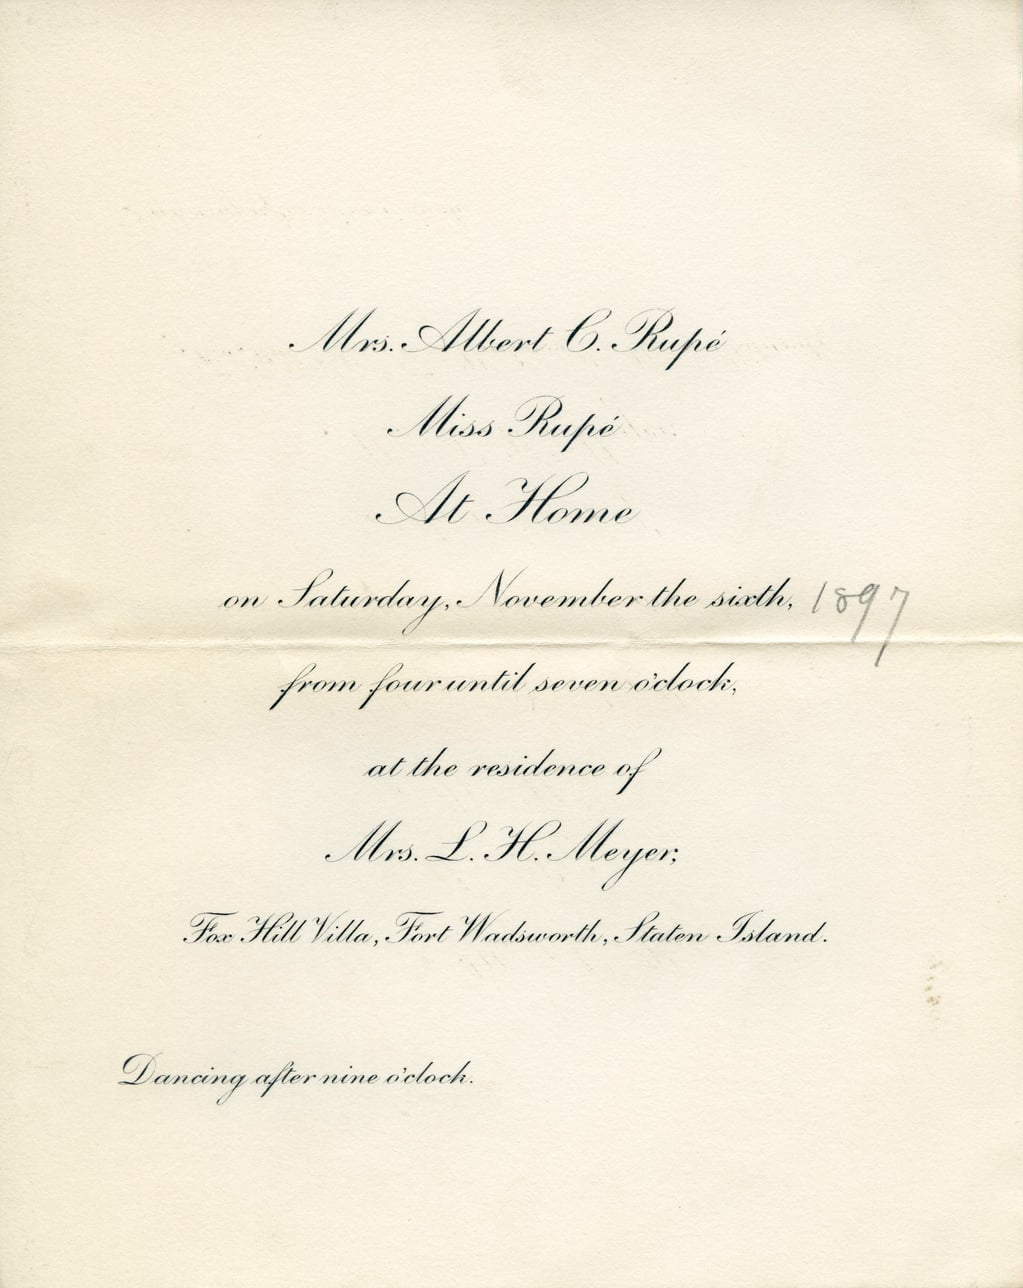 Mrs. Albert C. Rupé
Miss Rupé
At Home
on Saturday, November the sixth, 1897
from four until seven o'clock,
at the residence of
Mrs. L. H. Meyer,
Fox Hill Villa, Fort Wadsworth, Staten Island.
Dancing after nine o'clock.